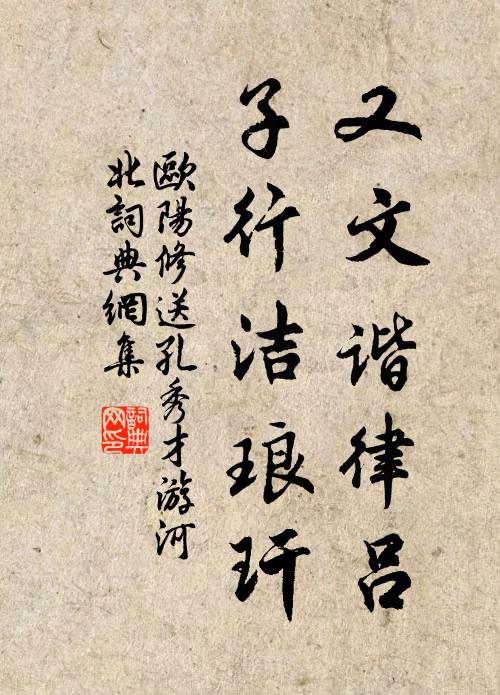 又文谐律吕
子行洁琅玕
歐陽修送孔秀才游河
北詞典網集
詞典
网印